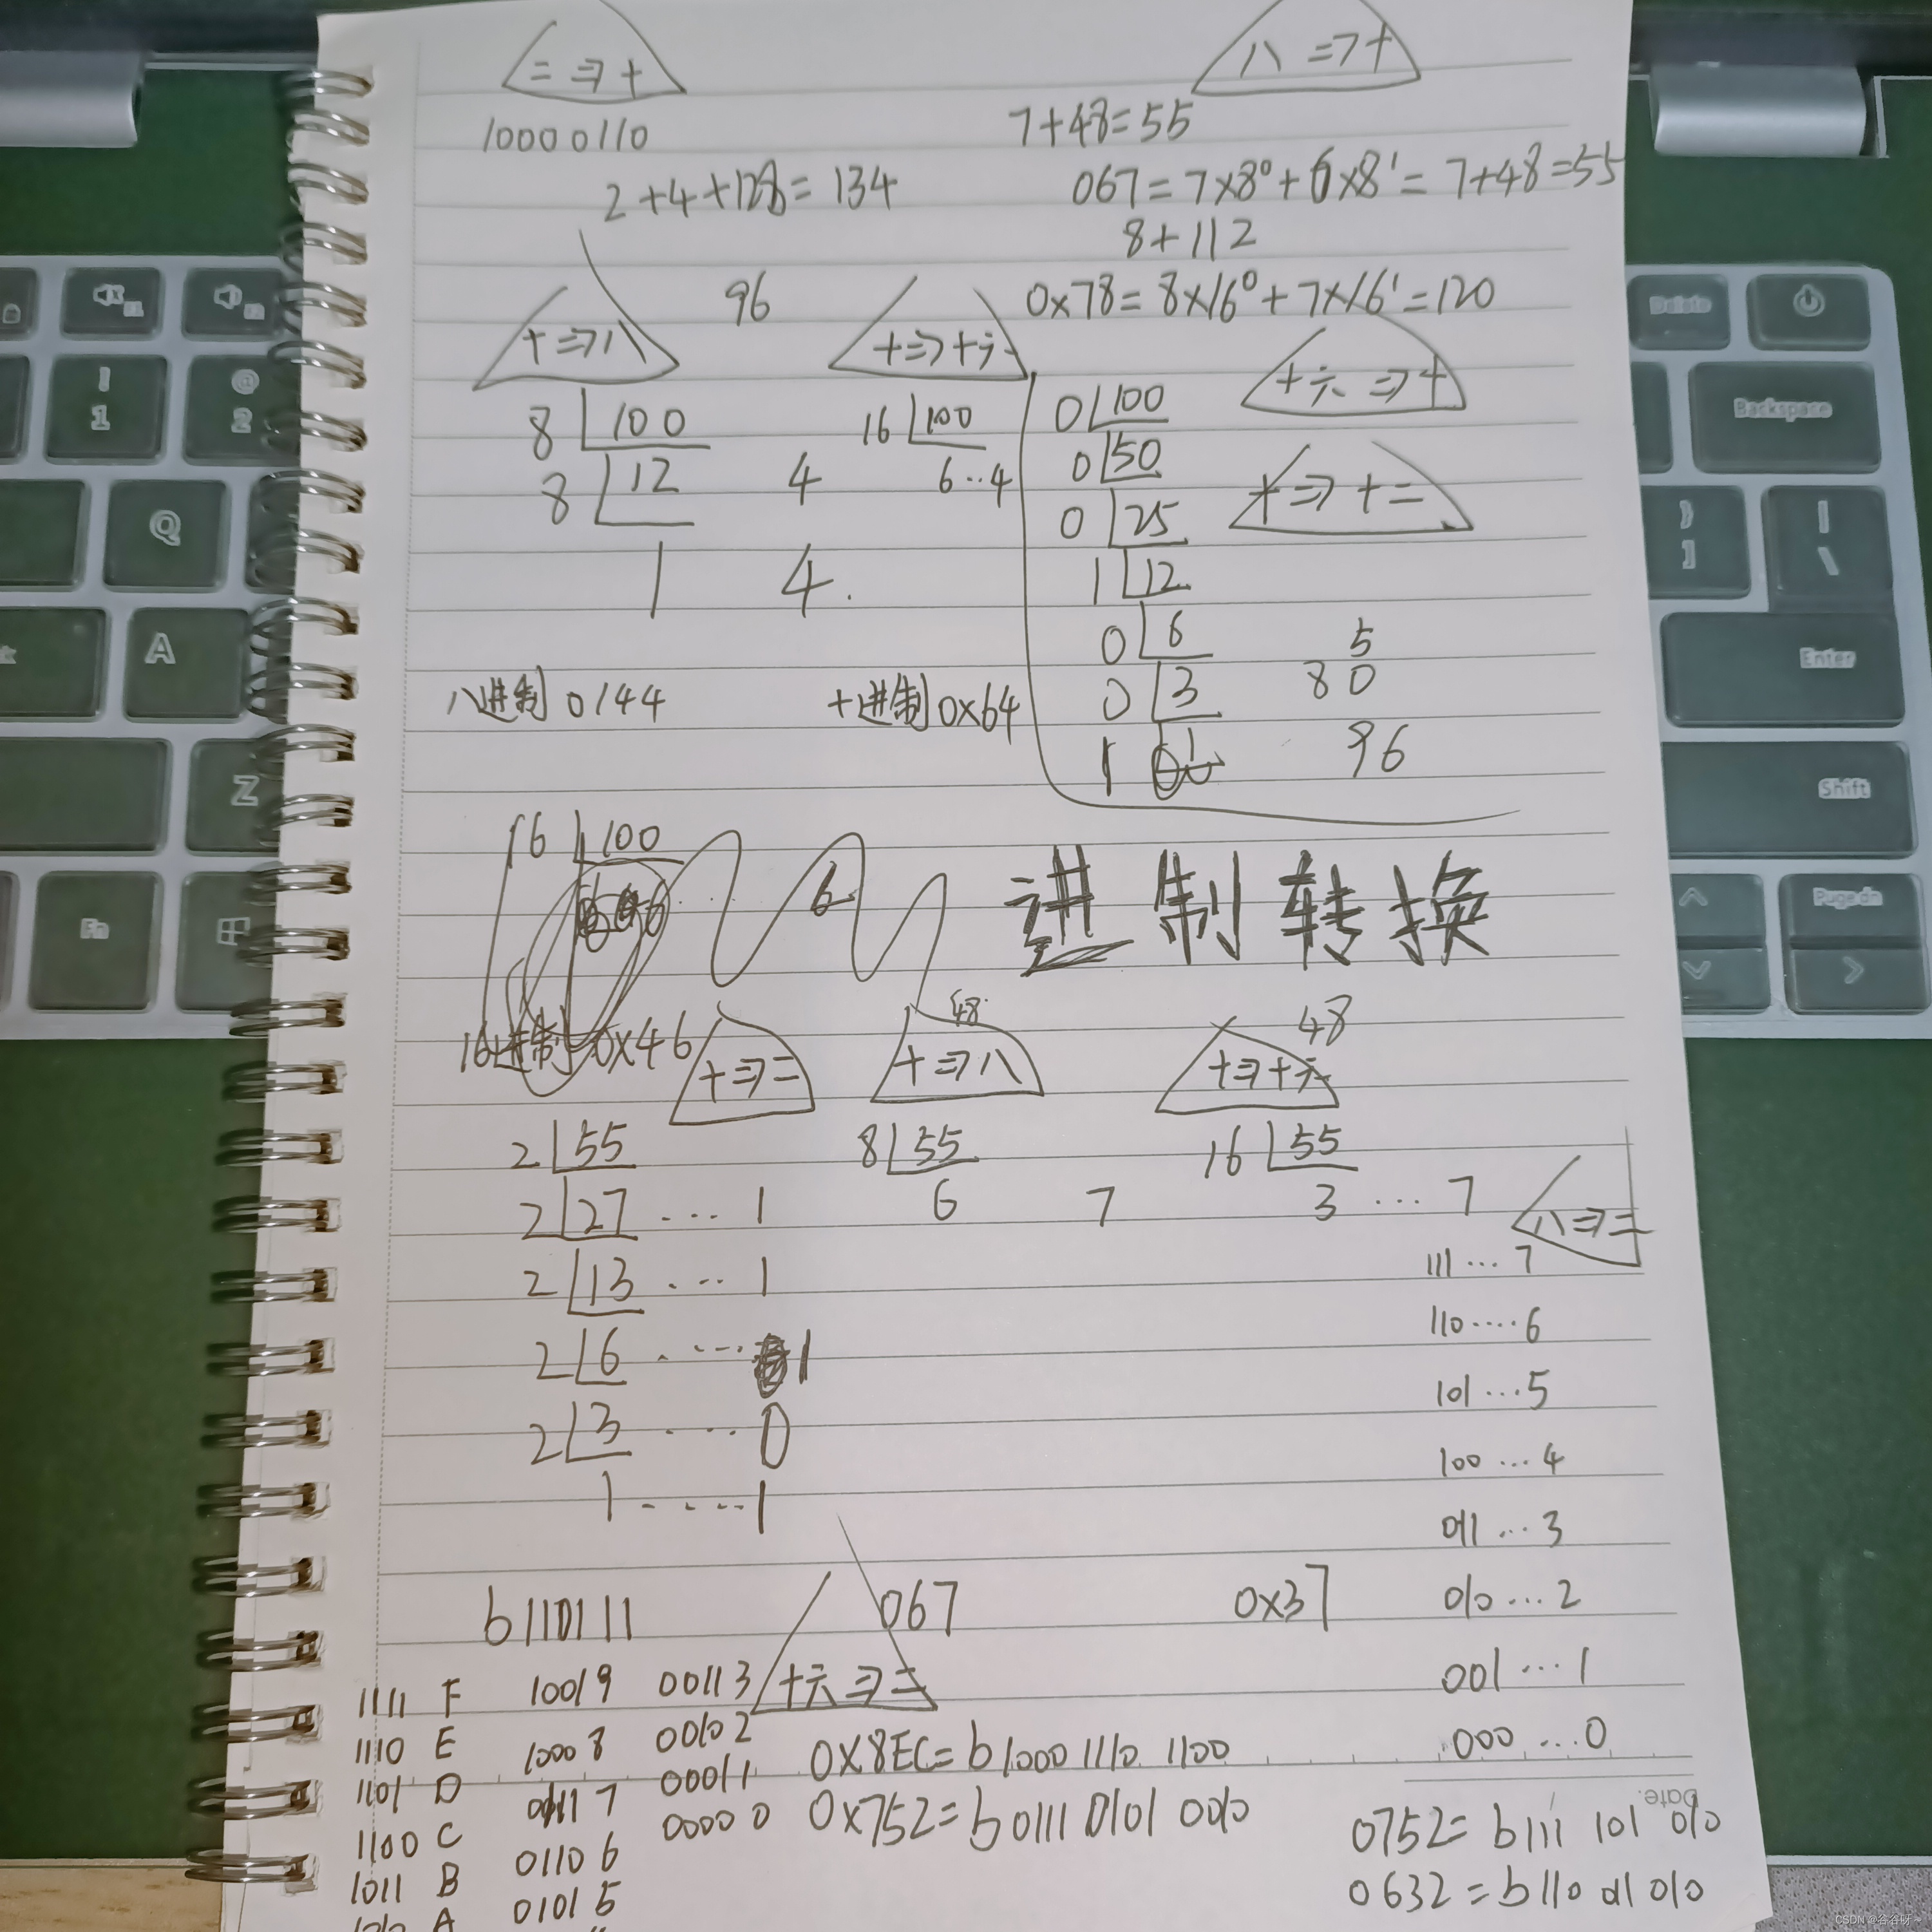 二⇒十
八⇒十
10000110
7+48=55
2+4+128=134
067=7×8⁰+6×8¹=7+48=55
8+112
96
0x78=8×16⁰+7×16¹=120
十⇒八
十⇒十六
十六⇒十
8 100
16 100
0 100
8 12 4
6..4
0 50
十⇒十二
0 25
1 4.
1 12
0 6 5
八进制 0144
十进制 0x64
0 3 80
1 96
16 100
6
进制转换
16进制 0x46
十⇒二
48
十⇒八
48
十⇒十六
2 55
8 55
16 55
2 27 ... 1
6 7
3 ... 7
八⇒二
2 13 ... 1
111 ... 7
2 6 ..... 1
110 .... 6
2 3 ..... 0
101 ... 5
1 ..... 1
100 ... 4
011 ... 3
b110111
067
0x37
010 ... 2
十六⇒二
001 ... 1
000 ... 0
1111 F 1001 9 0011 3
1110 E 1000 8 0010 2
1101 D 0111 7 0001 1
1100 C 0110 6 0000 0
1011 B 0101 5
1010 A
0X8EC=b1000 1110 1100
0x752=b0111 0101 0010
Date.
0752=b111 101 010
0632=b110 011 010
Delete
! 1
@ 2
Backspace
Q
} ]
| \
A
Enter
Z
Shift
Fn
Pguedn
CSDN @谷谷呀